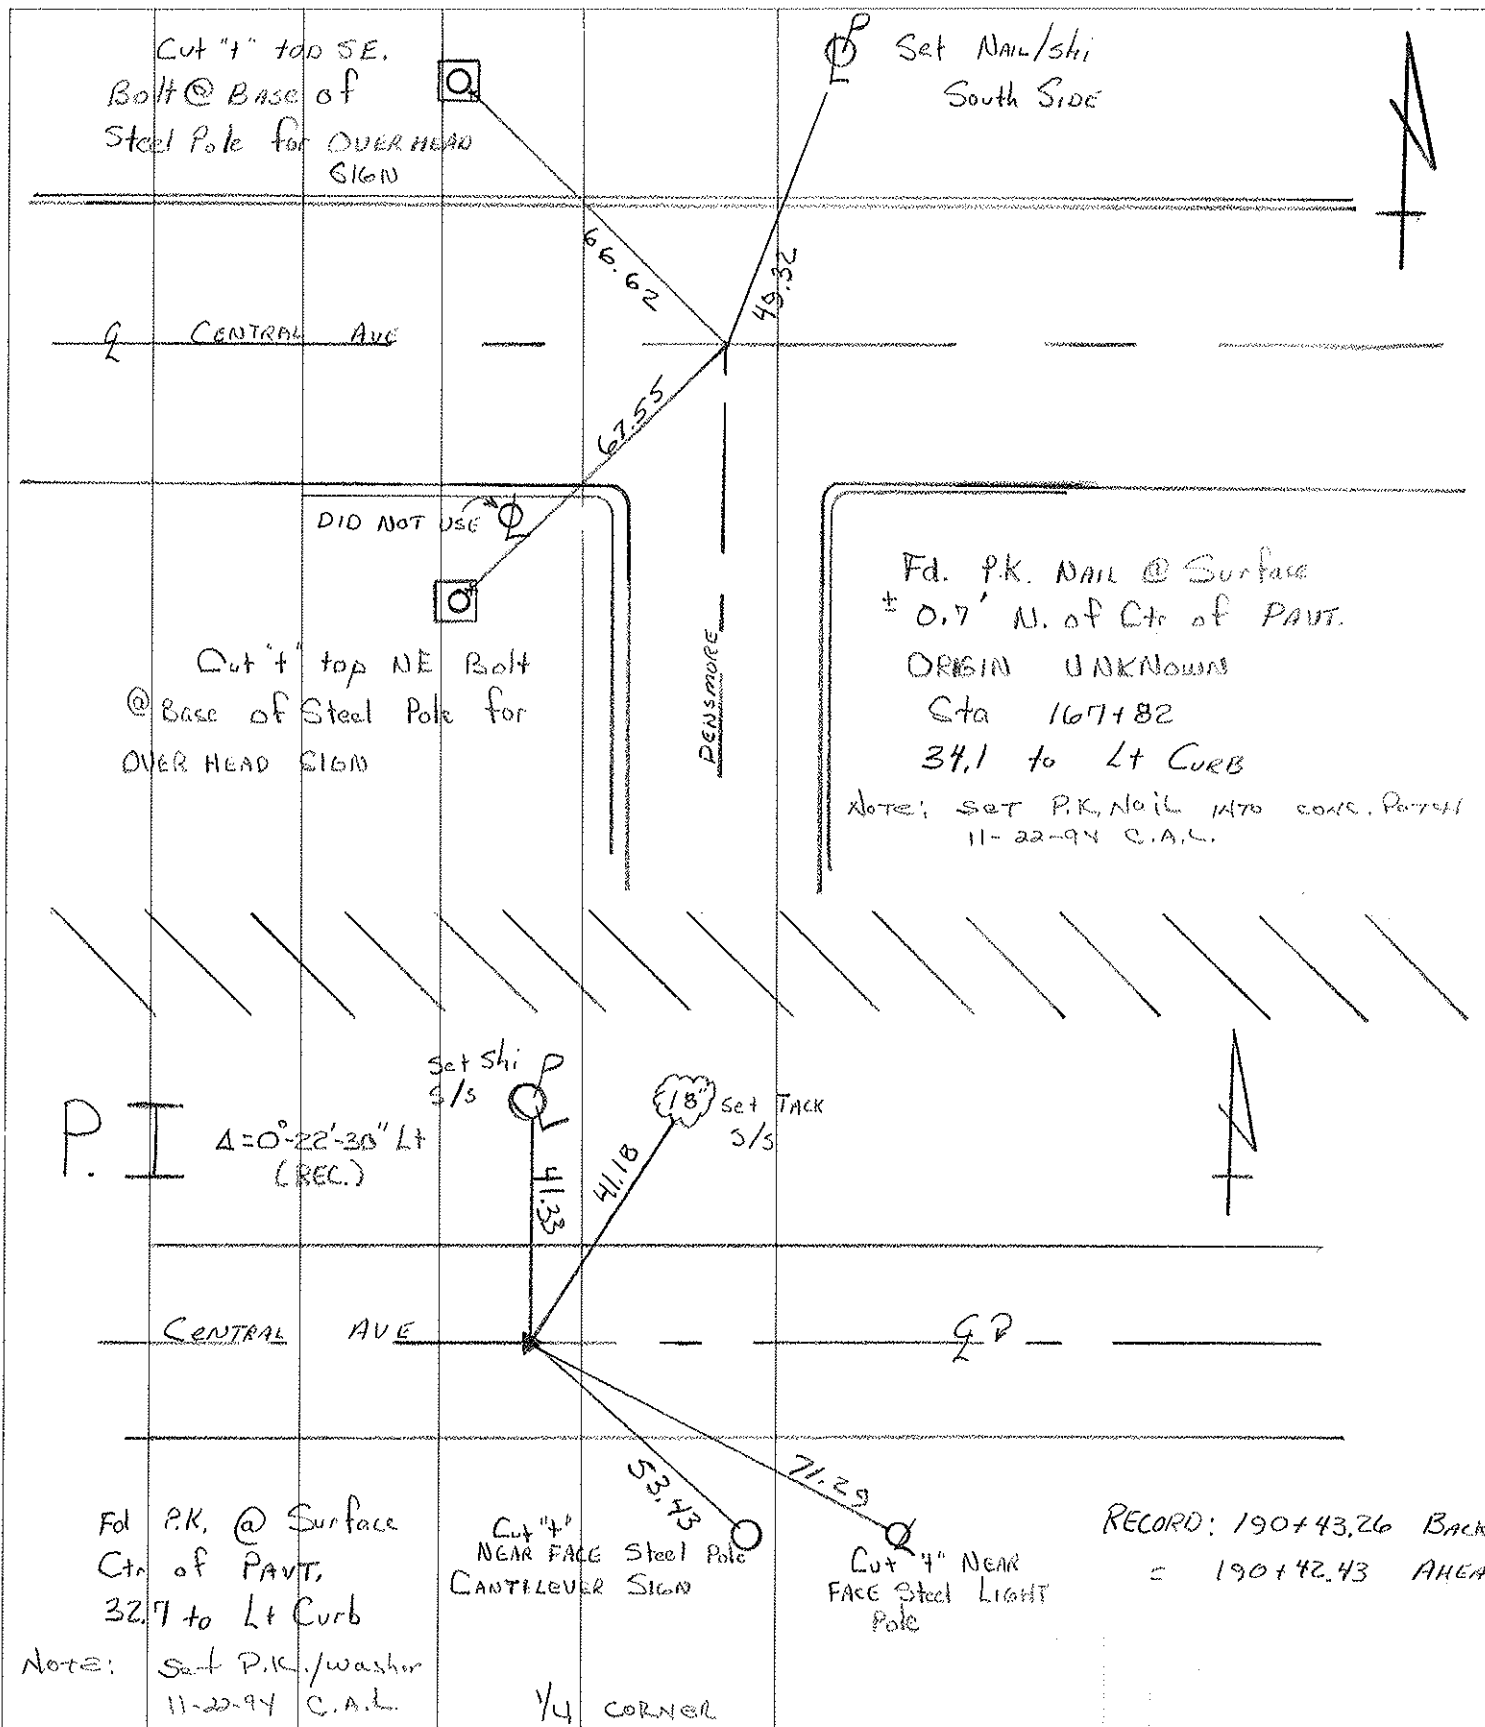 Cut "t" top SE.
Bolt @ BASE of
Steel Pole for OVERHEAD
SIGN
P
Set NAIL/shi
South SIDE
66.62
49.32
CL CENTRAL AVE
67.55
DID NOT USE
Cut "t" top NE Bolt
@ Base of Steel Pole for
OVER HEAD SIGN
DENSMORE
Fd. P.K. NAIL @ Surface
± 0.7' N. of Ctr of PAVT.
ORIGIN UNKNOWN
Sta 167+82
34.1 to Lt CURB
NOTE: SET P.K. NAIL INTO CONC. PATCH
11-22-94 C.A.L.
P.I
Δ=0°-22'-30" Lt
(REC.)
Set Shi
S/S
P
18"
Set TACK
S/S
41.33
41.18
CENTRAL AVE
CL
53.43
71.29
Fd P.K. @ Surface
Ctr of PAVT.
32.7 to Lt Curb
Note: Set P.K./washer
11-22-94 C.A.L.
Cut "t"
NEAR FACE Steel Pole
CANTILEVER SIGN
Cut "t" NEAR
FACE Steel LIGHT
Pole
RECORD: 190+43.26 BACK
= 190+42.43 AHEA
1/4 CORNER